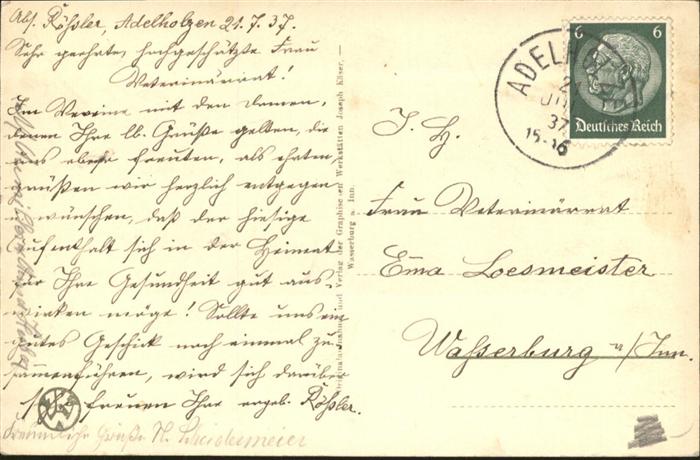 Abs. Rößler, Adelholzen 21.7.37.
Sehr geehrte, hochgeschätzte Frau
Veterinärrat!
Im Vereine mit den Damen,
denen Ihre lb. Grüße gelten, die
uns ebenso freuten, als ehrten,
grüßen wir herzlich entgegen
u. wünschen, daß der hiesige
Aufenthalt sich in der Heimat
für Ihre Gesundheit gut aus-
wirken möge! Sollte uns ein
gutes Geschick noch einmal zu-
sammenführen, wird sich darüber
sehr freuen Ihre ergeb. Rößler.
Freundliche Grüße N. Scheidermeier
Originalaufnahme und Verlag der Graphischen Werkstätten Joseph Käser,
Wasserburg a. Inn.
ADELHOLZEN
21
JUL
37
15-16
6 6
Deutsches Reich
I. H.
Frau Veterinärrat
Ema Loesmeister
Wasserburg a/Inn.